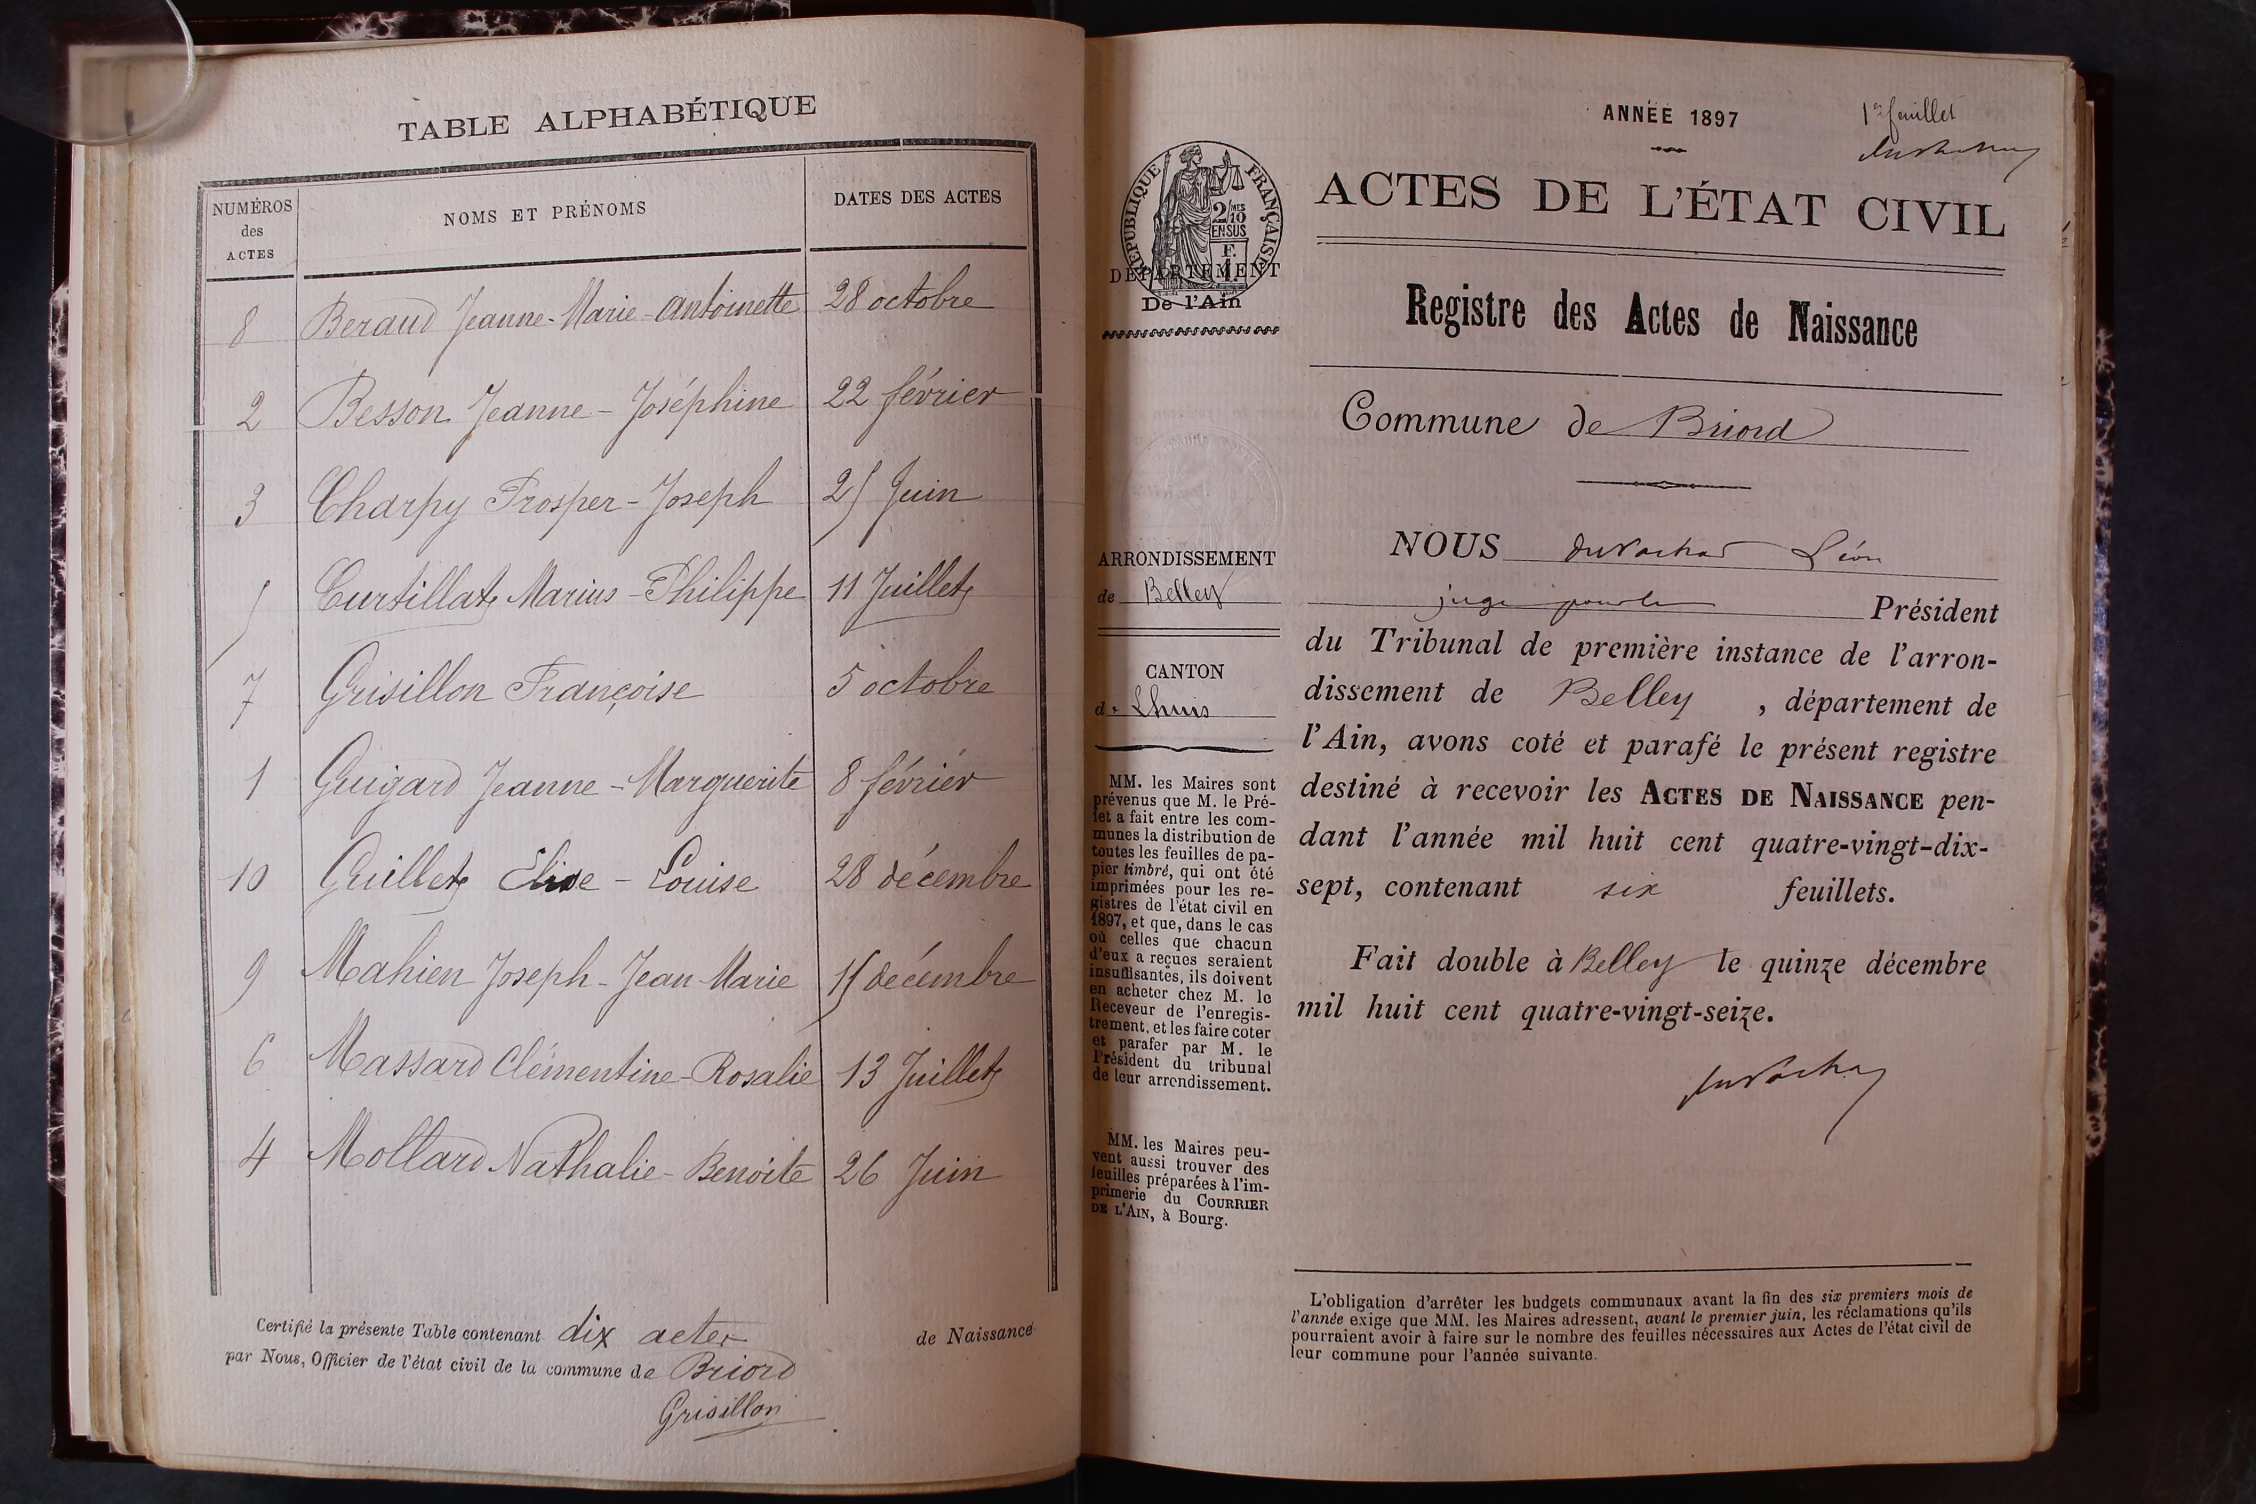 TABLE ALPHABÉTIQUE
NUMÉROS des ACTES
NOMS ET PRÉNOMS
DATES DES ACTES
8 Beraud Jeanne-Marie-Antoinette 28 octobre
2 Besson Jeanne-Joséphine 22 février
3 Charpy Prosper-Joseph 25 Juin
5 Curtillat Marius-Philippe 11 Juillet
7 Grisillon Françoise 5 octobre
1 Guigard Jeanne-Marguerite 8 février
10 Guillet Elise-Louise 28 décembre
9 Mahien Joseph-Jean-Marie 15 décembre
6 Massard Clémentine-Rosalie 13 Juillet
4 Mollard Nathalie-Benoite 26 Juin
Certifié la présente Table contenant dix actes de Naissance
par Nous, Officier de l'état civil de la commune de Briord
Grisillon
ANNÉE 1897
1er feuillet
RÉPUBLIQUE FRANÇAISE
2/10 MES
EN SUS
F.
DÉPARTEMENT
De l'Ain
ACTES DE L'ÉTAT CIVIL
Registre des Actes de Naissance
Commune de Briord
ARRONDISSEMENT
de Belley
CANTON
de Lhuis
MM. les Maires sont
prévenus que M. le Pré-
fet a fait entre les com-
munes la distribution de
toutes les feuilles de pa-
pier timbré, qui ont été
imprimées pour les re-
gistres de l'état civil en
1897, et que, dans le cas
où celles que chacun
d'eux a reçues seraient
insuffisantes, ils doivent
en acheter chez M. le
Receveur de l'enregis-
trement, et les faire coter
et parafer par M. le
Président du tribunal
de leur arrondissement.
MM. les Maires peu-
vent aussi trouver des
feuilles préparées à l'im-
primerie du COURRIER
DE L'AIN, à Bourg.
NOUS Léon
juge pour le Président
du Tribunal de première instance de l'arron-
dissement de Belley, département de
l'Ain, avons coté et parafé le présent registre
destiné à recevoir les ACTES DE NAISSANCE pen-
dant l'année mil huit cent quatre-vingt-dix-
sept, contenant six feuillets.
Fait double à Belley le quinze décembre
mil huit cent quatre-vingt-seize.
L'obligation d'arrêter les budgets communaux avant la fin des six premiers mois de
l'année exige que MM. les Maires adressent, avant le premier juin, les réclamations qu'ils
pourraient avoir à faire sur le nombre des feuilles nécessaires aux Actes de l'état civil de
leur commune pour l'année suivante.